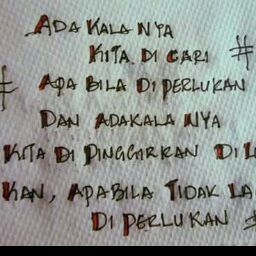 ADAKALANYA
KITA DI CARI #
# APA BILA DI PERLUKAN
DAN ADAKALA NYA
KITA DI PINGGIRKAN DI L
KAN, APABILA TIDAK LA
DI PERLUKAN #